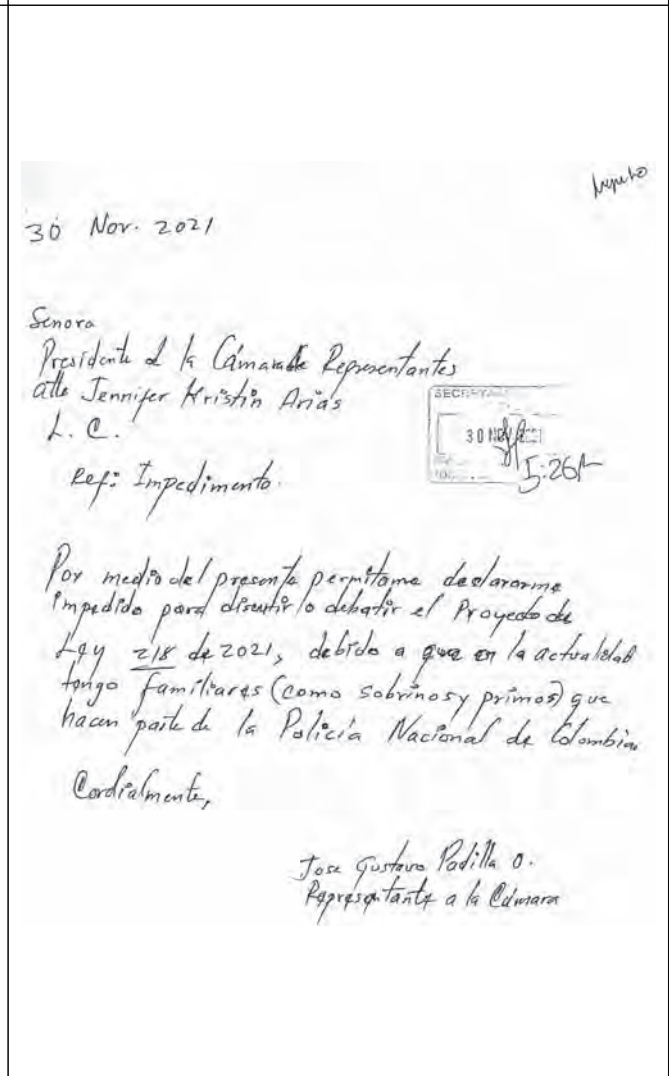 30 Nov. 2021
Senora
Presidente d la Cámara de Representantes
atte Jennifer Kristin Arias
L. C.
30 NOV 2021
5:26
Ref: Impedimento.
Por medio del presente permitame declararme
impedido para discutir o debatir el Proyecto de
Ley 218 de 2021, debido a que en la actualidad
tengo familiares (como sobrinos y primos) que
hacen parte de la Policía Nacional de Colombia
Cordialmente,
Jose Gustavo Padilla O.
Representante a la Cámara